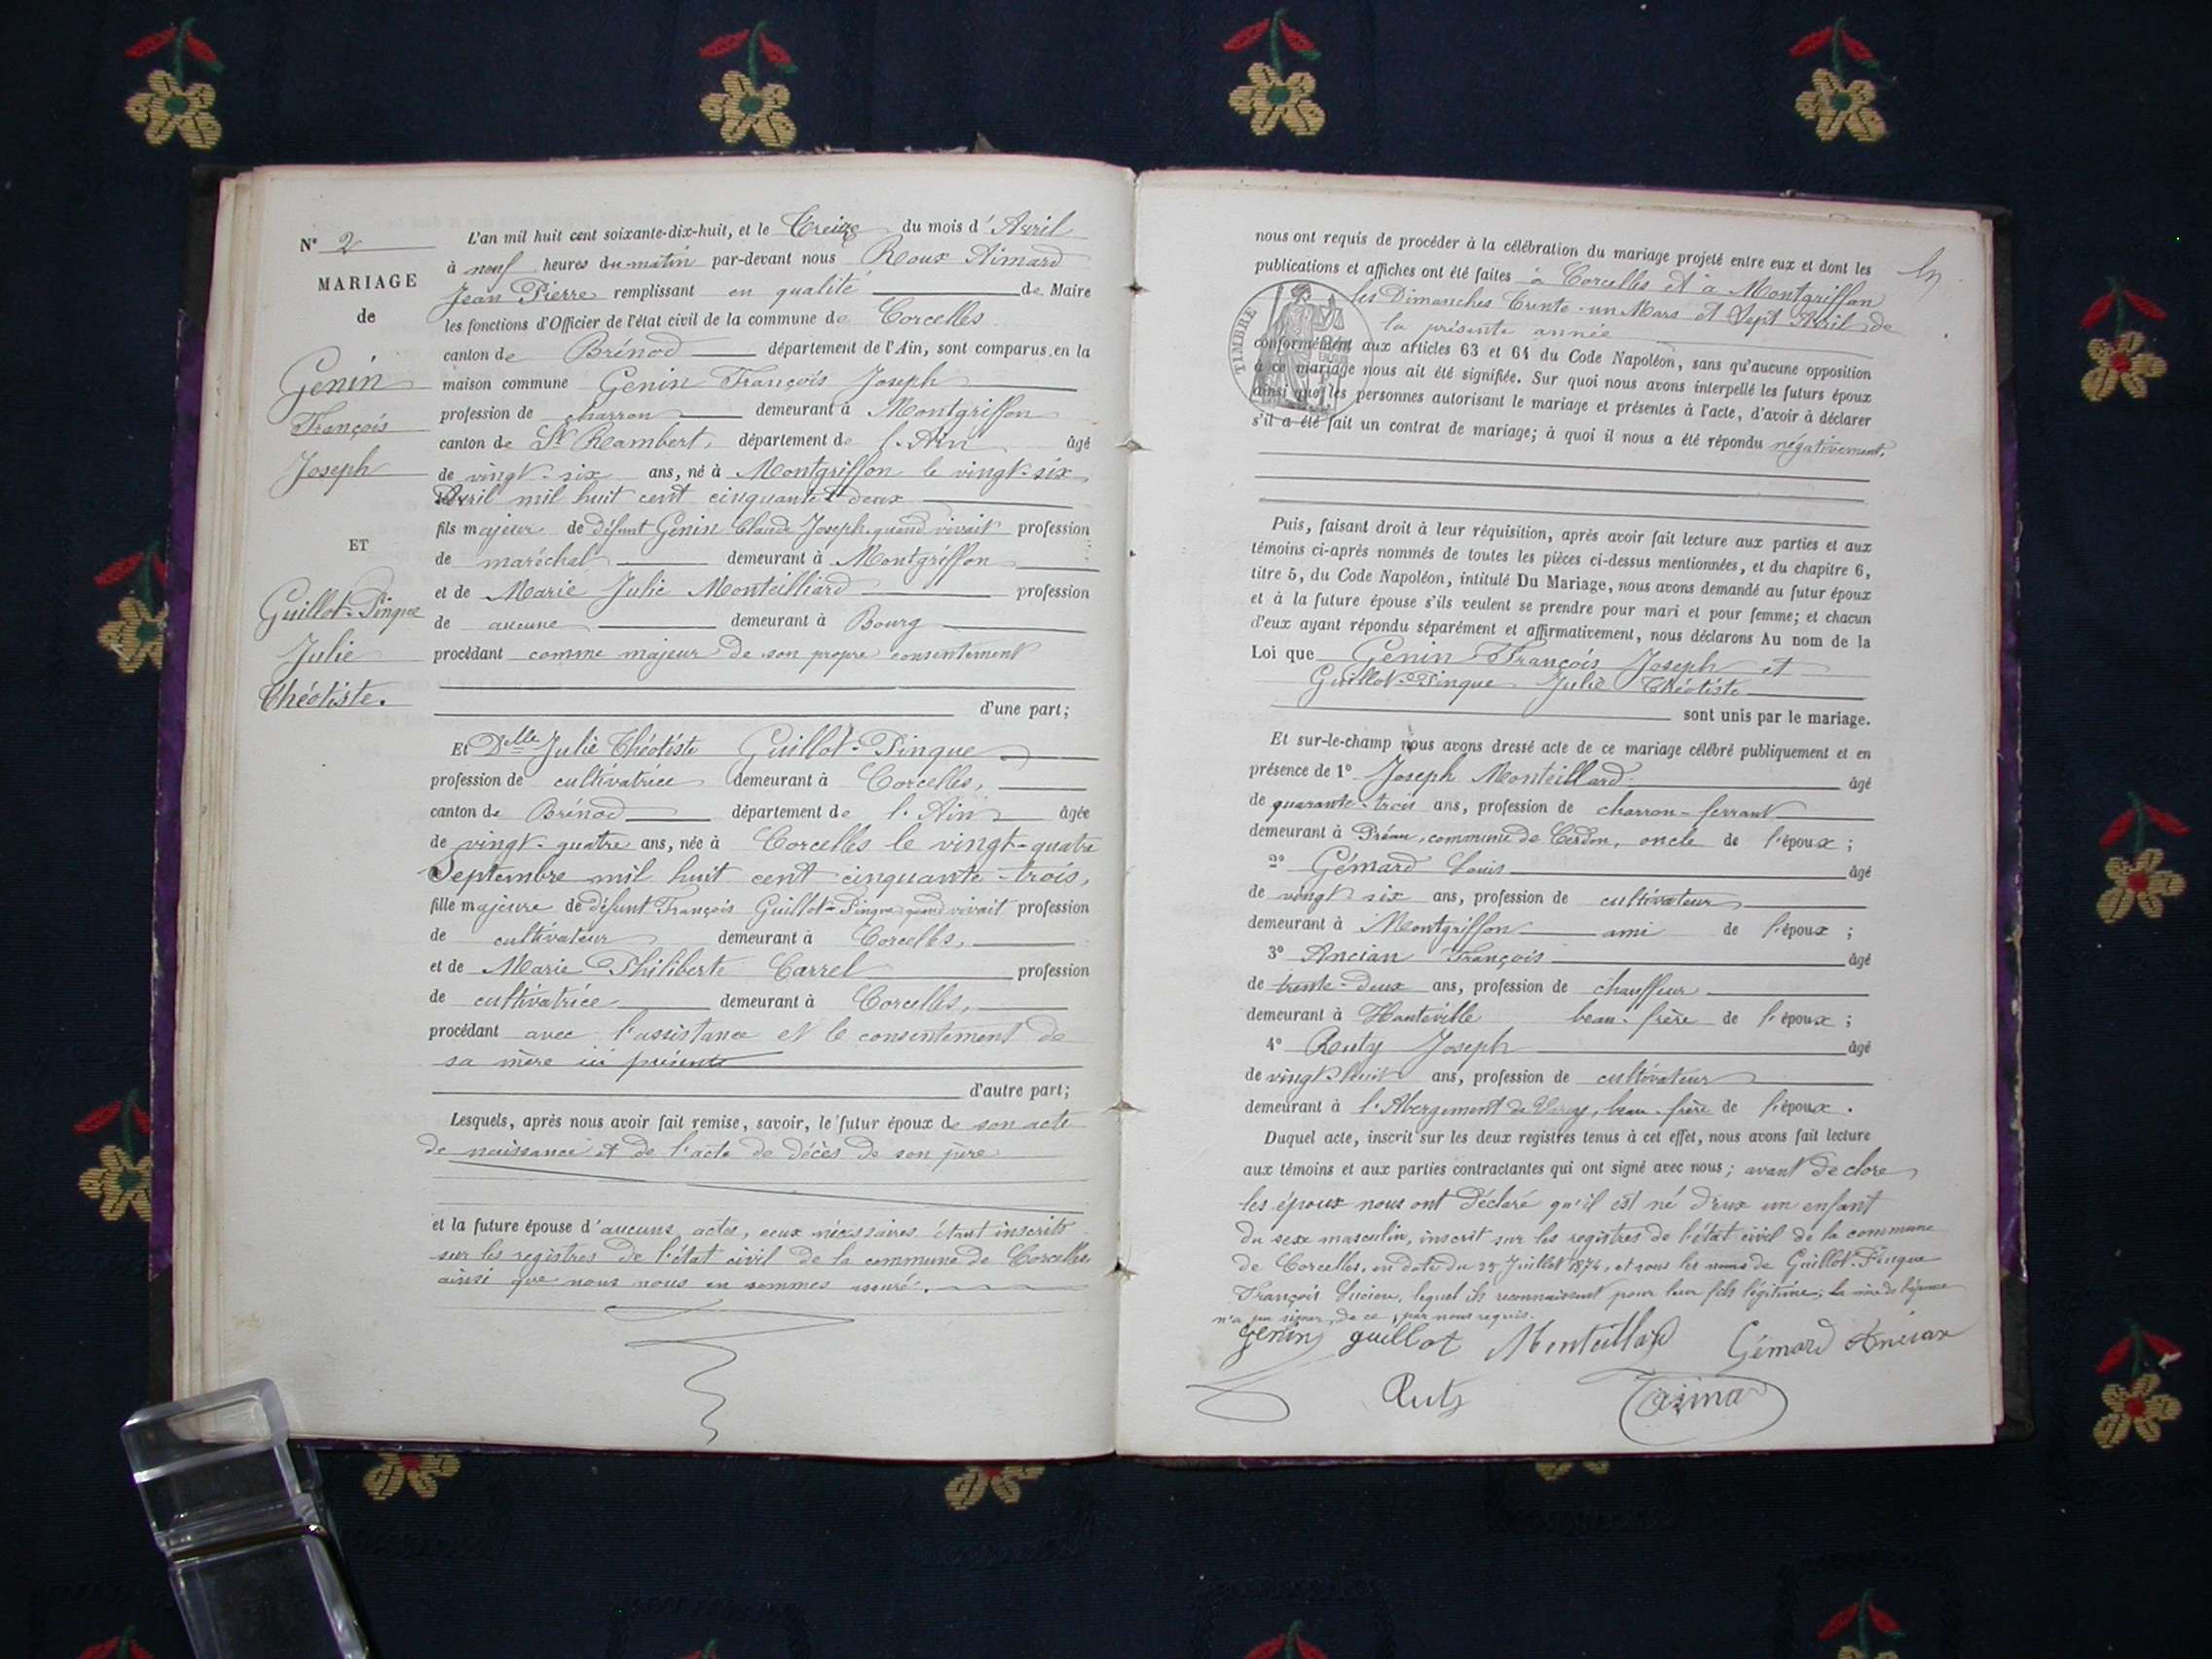 Nº 2
MARIAGE
de
Genin
François
Joseph
ET
Guillot-Pingue
Julie
Théotiste.
L'an mil huit cent soixante-dix-huit, et le Treize du mois d'Avril
à neuf heures du matin par-devant nous Roux Aimard
Jean Pierre remplissant en qualité de Maire
les fonctions d'Officier de l'état civil de la commune de Corcelles
canton de Brénod département de l'Ain, sont comparus en la
maison commune Genin François Joseph
profession de charron demeurant à Montgriffon
canton de St Rambert, département de l'Ain âgé
de vingt-six ans, né à Montgriffon le vingt-six
Avril mil huit cent cinquante deux
fils majeur de défunt Genin Claude Joseph quand vivait profession
de maréchal demeurant à Montgriffon
et de Marie Julie Monteilliard profession
de aucune demeurant à Bourg
procédant comme majeur de son propre consentement
d'une part;
Et Delle Julie Théotiste Guillot-Pingue
profession de cultivatrice demeurant à Corcelles,
canton de Brénod département de l'Ain âgée
de vingt-quatre ans, née à Corcelles le vingt-quatre
Septembre mil huit cent cinquante-trois,
fille majeure de défunt François Guillot-Pingue quand vivait profession
de cultivateur demeurant à Corcelles,
et de Marie Philiberte Carrel profession
de cultivatrice demeurant à Corcelles,
procédant avec l'assistance et le consentement de
sa mère ici présente
d'autre part;
Lesquels, après nous avoir fait remise, savoir, le futur époux de son acte
de naissance et de l'acte de décès de son père
et la future épouse d'aucuns actes, ceux nécessaires étant inscrits
sur les registres de l'état civil de la commune de Corcelles,
ainsi que nous nous en sommes assuré.
nous ont requis de procéder à la célébration du mariage projeté entre eux et dont les
publications et affiches ont été faites à Corcelles et à Montgriffon
les Dimanches Trente-un Mars et Sept Avril de
la présente année
TIMBRE
conformément aux articles 63 et 64 du Code Napoléon, sans qu'aucune opposition
à ce mariage nous ait été signifiée. Sur quoi nous avons interpellé les futurs époux
ainsi que les personnes autorisant le mariage et présentes à l'acte, d'avoir à déclarer
s'il a été fait un contrat de mariage; à quoi il nous a été répondu négativement.
Puis, faisant droit à leur réquisition, après avoir fait lecture aux parties et aux
témoins ci-après nommés de toutes les pièces ci-dessus mentionnées, et du chapitre 6,
titre 5, du Code Napoléon, intitulé Du Mariage, nous avons demandé au futur époux
et à la future épouse s'ils veulent se prendre pour mari et pour femme; et chacun
d'eux ayant répondu séparément et affirmativement, nous déclarons Au nom de la
Loi que Genin François Joseph et
Guillot-Pingue Julie Théotiste
sont unis par le mariage.
Et sur-le-champ nous avons dressé acte de ce mariage célébré publiquement et en
présence de 1º Joseph Monteillard âgé
de quarante-trois ans, profession de charron-ferrant
demeurant à Préau, commune de Cerdon, oncle de l'époux;
2º Gémard Louis âgé
de vingt six ans, profession de cultivateur
demeurant à Montgriffon ami de l'époux;
3º Ancian François âgé
de trente-deux ans, profession de chauffeur
demeurant à Hauteville beau-frère de l'époux;
4º Ruty Joseph âgé
de vingt-huit ans, profession de cultivateur
demeurant à l'Abergement de Varey, beau-frère de l'époux.
Duquel acte, inscrit sur les deux registres tenus à cet effet, nous avons fait lecture
aux témoins et aux parties contractantes qui ont signé avec nous; avant de clore
les époux nous ont déclaré qu'il est né d'eux un enfant
du sexe masculin, inscrit sur les registres de l'état civil de la commune
de Corcelles, en date du Juillet 1874, et sous les noms de Guillot-Pingue
François Lucien, lequel ils reconnaissent pour leur fils légitime; la mère de l'épouse
n'a pu signer, de ce par nous requis.
Genin guillot Monteillard Gémard Ancian
Ruty